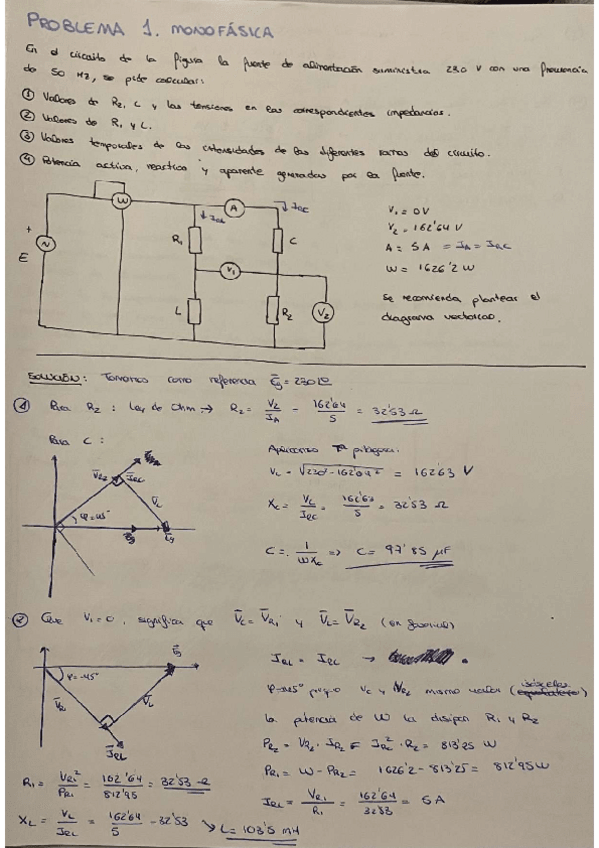 PROBLEMA 1. MONOFÁSICA
En el circuito de la figura la fuente de alimentación suministra 230 V con una frecuencia
de 50 Hz, se pide calcular:
① Valores de R2, C y las tensiones en las correspondientes impedancias.
② Valores de R1 y L.
③ Valores temporales de las intensidades de las diferentes ramas del circuito.
④ Potencia activa, reactiva y aparente generadas por la fuente.
W
A
IRL
IRC
R1
C
V1
E
+
N
L
R2
V2
V1 = 0V
V2 = 162'64 V
A = 5A = IA = IRC
W = 1626'2 W
Se recomienda plantear el
diagrama vectorial.
SOLUCIÓN: Tomamos como referencia Eg = 230∟0º
① Para R2 : Ley de Ohm → R2 = V2/IA = 162'64/5 = 32'53 Ω
Para C :
Aplicamos Tª pitágoras.
VC = √230²-162'64² = 162'63 V
XC = VC/IRC = 162'63/5 = 32'53 Ω
C = 1/WXC => C = 97'85 μF
VR2
IRC
VC
φ=45º
Eg
② Que V1=0, significa que VC = VR1 y VL = VR2 (en fasorial)
Eg
φ=-45º
VR1
VL
IRL
IRL = IRC →
φ=45º porque VC y VR2 mismo valor (isósceles)
la potencia de W la disipan R1 y R2
PR2 = VR2 · IR = IRC² · R2 = 813'25 W
PR1 = W - PR2 = 1626'2 - 813'25 = 812'95W
IRL = VR1/R1 = 162'64/32'53 = 5A
R1 = VR1²/PR1 = 162'64/812'95 = 32'53 Ω
XL = VL/IRL = 162'64/5 = 32'53 ↘ L = 103'5 mH